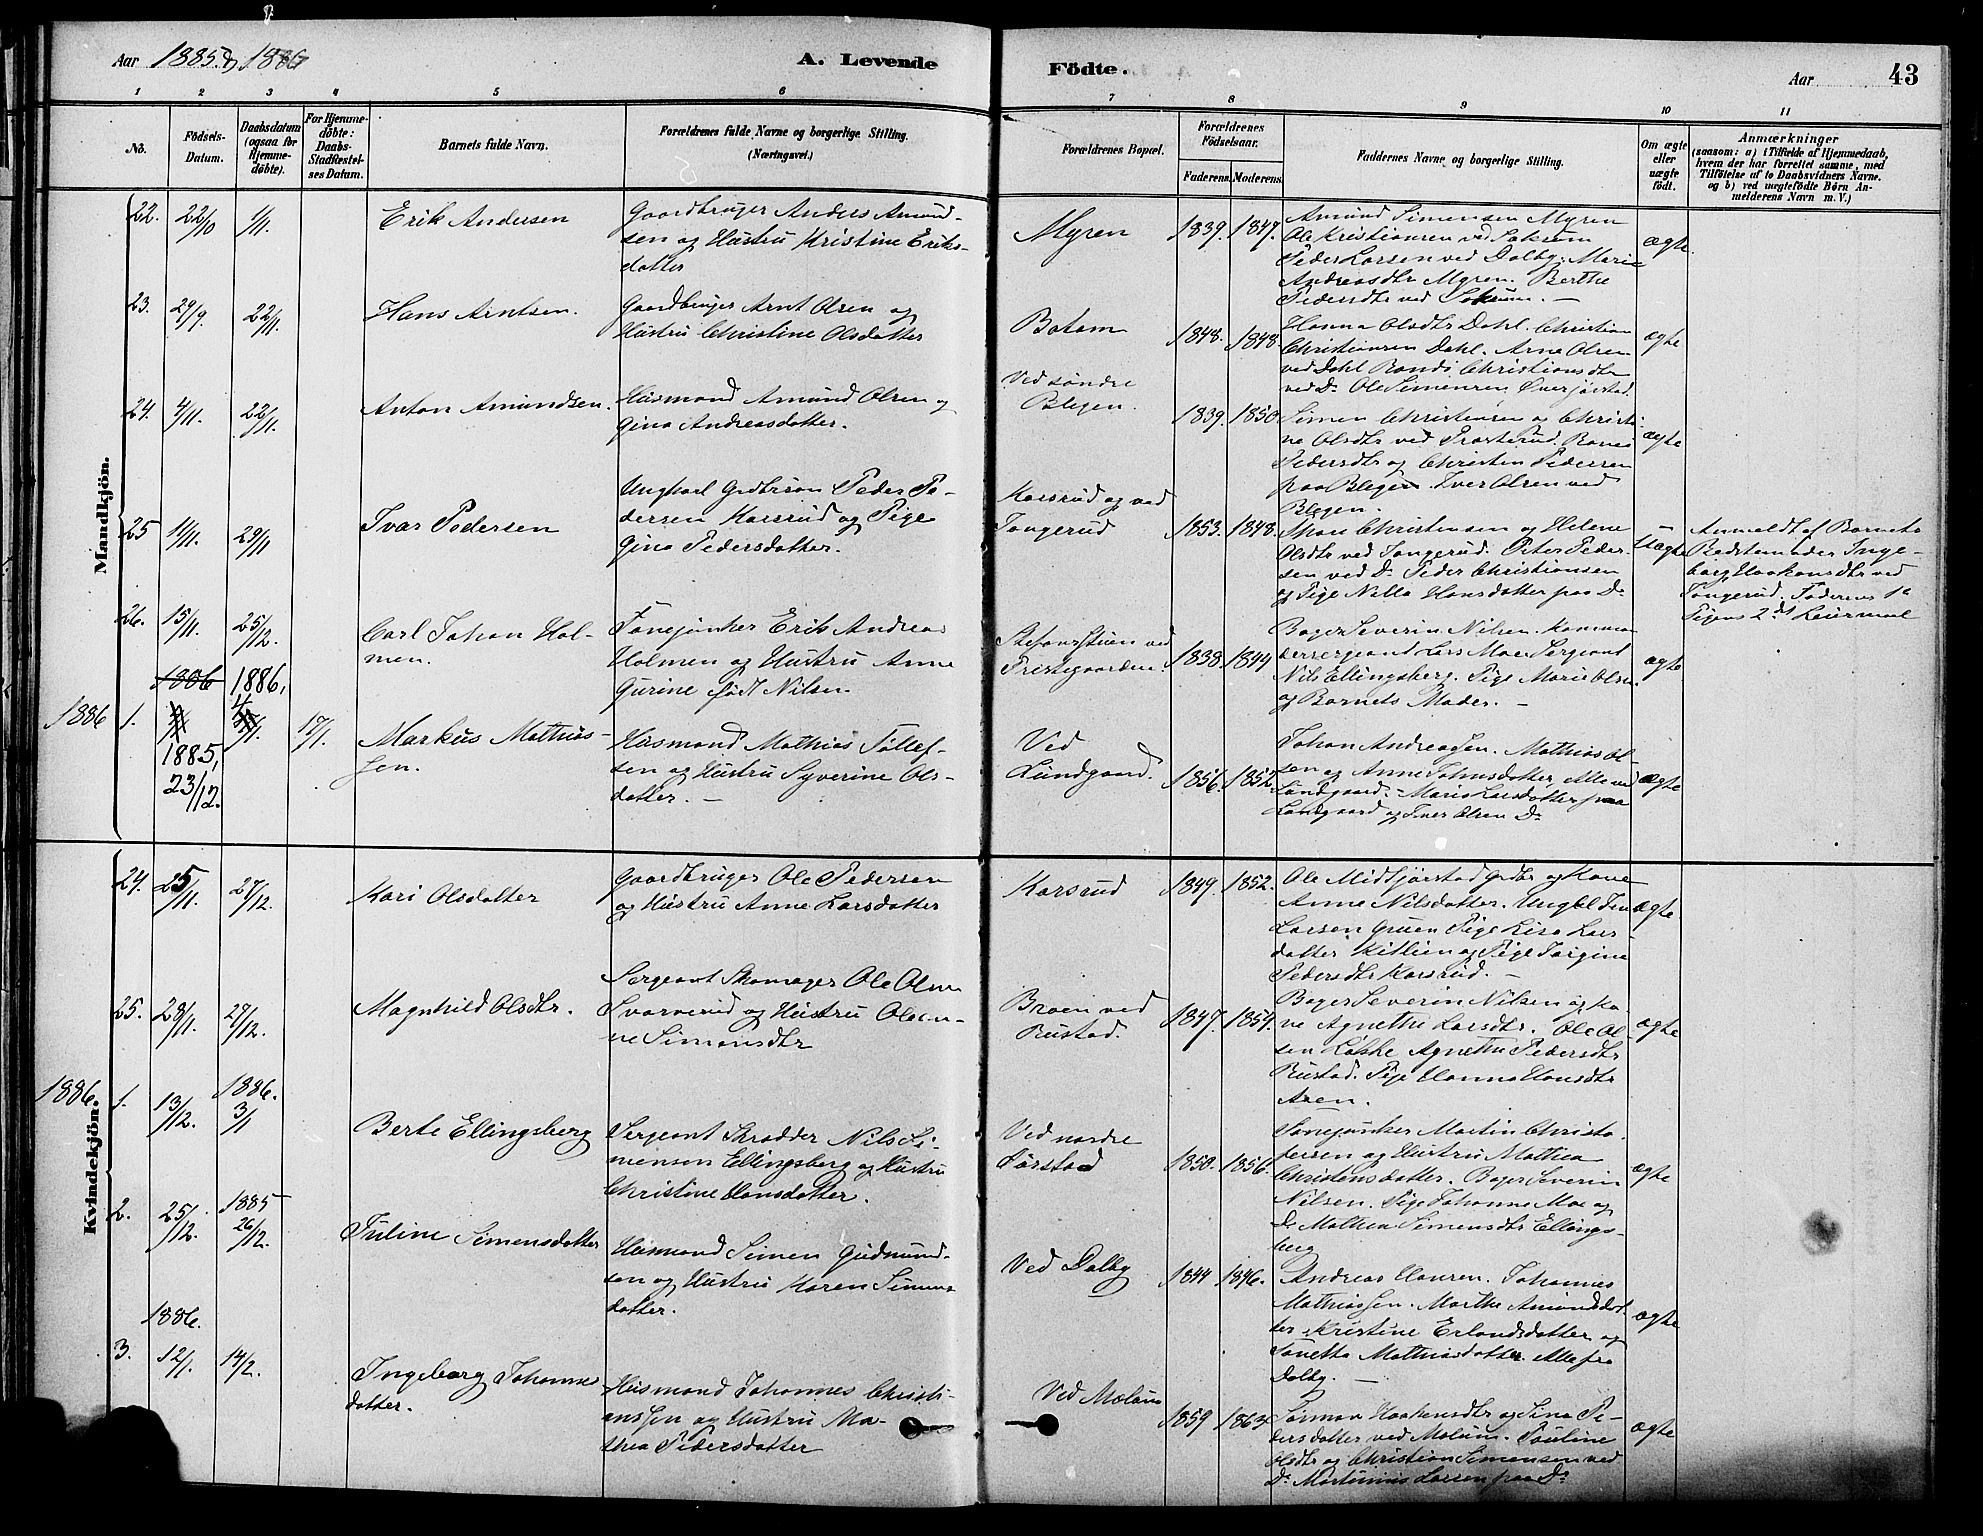 Aar 1885 & 1886
A. Levende Födte.
Aar
43
1 2 3 4 5 6 7 8 9 10 11
No.
Födsels-Datum.
Daabsdatum (ogsaa for Hjemme-döbte).
For Hjemme-döbte: Daabs-Stadfæstel-ses Datum.
Barnets fulde Navn.
Forældrenes fulde Navne og borgerlige Stilling. (Næringsvei.)
Forældrenes Bopæl.
Forældrenes Födselsaar.
Faderens. Moderens.
Faddernes Navne og borgerlige Stilling.
Om ægte eller uægte födt.
Anmærkninger
(saasom: a) i Tilfælde af Hjemmedaab,
hvem der har forrettet samme, med
Tilföielse af to Daabsvidners Navne.
og b) ved uægtefödte Börn An-
melderens Navn m. V.)
Mandkjön.
22. 22/10 1/11. Erik Andersen
Gaardbruger Anders Amund-
sen og Hustru Kristine Eriks-
datter
Myren 1839. 1847.
Amund Simensen Myren
Ole Kristiansen ved Sokrum
Peder Larsen ved Dalby. Marie
Andreasdtr Myren. Berthe
Pedersdtr ved Sokrum. —
ægte
23. 29/9. 22/11. Hans Arntsen.
Gaardbruger Arnt Olsen og
Hustru Christine Olsdatter
Botom 1848. 1848.
Hanna Olsdtr Dahl. Christian
Christiansen Dahl. Arne Olsen
ved Dahl Randi Christiansdtr
ved Do Ole Simensen Øverjörstad.
ægte
24. 4/11. 22/11. Anton Amundsen.
Husmand Amund Olsen og
Gina Andreasdatter.
Ved söndre
Blegen. 1839. 1850.
Simen Christensen og Christi-
ne Olsdtr ved Prosterud.
Pedersdtr og Christen Pedersen
paa Blegen. Iver Olsen ved
Blegen.
ægte
25 11/11. 29/11 Ivar Pedersen
Ungkarl Gdbrsön Peder Pe-
dersen Karsrud og Pige
Gina Pedersdatter.
Karsrud og ved
Tongerud 1853. 1848.
Christensen og Helene
Olsdtr ved Tongerud. Peter Peder-
sen ved Do Peder Christiansen
og Pige Nilla Hansdatter paa Do
Uægte
Anmeldt af Barnets
Bedstemoder Inge-
borg Haakensdtr ved
Tongerud. Faderens 1e
Pigens 2det Leiermaal
26. 15/11. 25/12. Carl Johan Hol-
men.
Fanejunker Erik Andreas
Holmen og Hustru Anne
Gurine födt Nilsen.
ved
Prestegaarden. 1838. 1844
Bager Severin Nilsen. Komman-
dersergeant Lars Moe. Sergeant
Nils Ellingsberg. Pige Marie Olsen.
og Barnets Moder. —
ægte
1886 1886,
1886 1. 1885, 23/12. 17/1. Markus Mathias-
sen.
Husmand Mathias Tollef-
sen og Hustru Syverine Ols-
datter. —
Ved
Lundgaard. 1856. 1852.
Johan Andreassen. Mathias Ol-
sen og Anne Johnsdatter, alle ved
Lundgaard. Marie Larsdatter paa
Lundgaard og Iver Olsen Do
ægte
Kvindekjön.
24. 25/11. 27/12. Kari Olsdatter
Gaardbruger Ole Pedersen
og Hustru Anne Larsdatter
Karsrud 1849. 1852.
Ole Midtjörstad Gdbr og Kone
Anne Nilsdatter. Ungkl Jen
Larsen Gruen Pige Lisa Lars-
datter Kitlien og Pige Jörgine
Pedersdtr Karsrud. —
ægte
25. 28/11. 27/12. Magnhild Olsdtr.
Sergeant Skomager Ole Olsen
Svarverud og Hustru Oleen-
ne Simensdtr
Braen ved
Rustad. 1847. 1859.
Bager Severin Nilsen og Ko-
ne Agnethe Larsdtr. Ole Ol-
sen Løkke Agnethe Pedersdtr
Rustad. Pige Hanna Hansdtr
Aaen.
ægte
1886. 1. 13/12. 1886. 3/1 Berte Ellingsberg
Sergeant Skrædder Nils Si-
mensen Ellingsberg og Hustru
Christine Hansdatter.
Ved nordre
Jørstad 1850. 1856.
Fanejunker Martin Christo-
fersen og Hustru Mathea
Christensdatter. Bager Severin
Nilsen. Pige Johanne Moe og
Do Mathea Simensdtr Ellings-
berg
ægte
2. 25/12. 1885 26/12. Juline Simensdatter
Husmand Simen Gudmund-
sen og Hustru Karen Simens
datter.
Ved Dalby 1844 1846.
Andreas Hansen. Johannes
Mathiassen. Marthe Amundsdat-
ter Kristine Erlandsdatter og
Janetta Mathiasdatter. Alle fra
Dalby. —
ægte
1886.
3. 12/1. 14/2. Ingeborg Johannes
datter.
Husmand Johannes Christi-
anssen og Hustru Ma-
thea Pedersdatter
Ved Molum 1859 1863.
Haakensdtr og Sina Pe-
dersdatter ved Molum. Pauline
Olsdtr og Christian Simensen ved
Do. Martinius Larsen paa Do
ægte